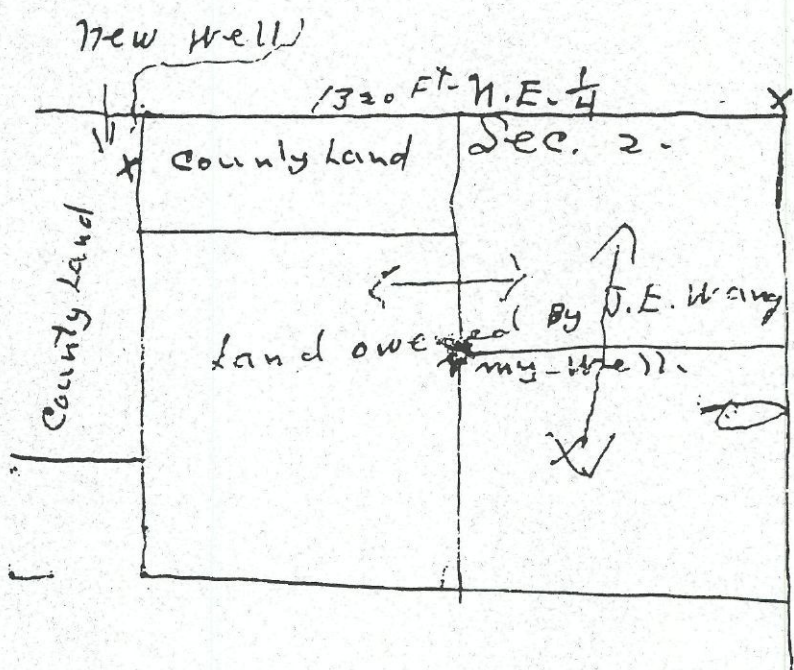 New Well
1320 Ft. N.E. 1/4
County Land
Sec. 2.
County Land
Land owened By J.E. Wang
my-Well.